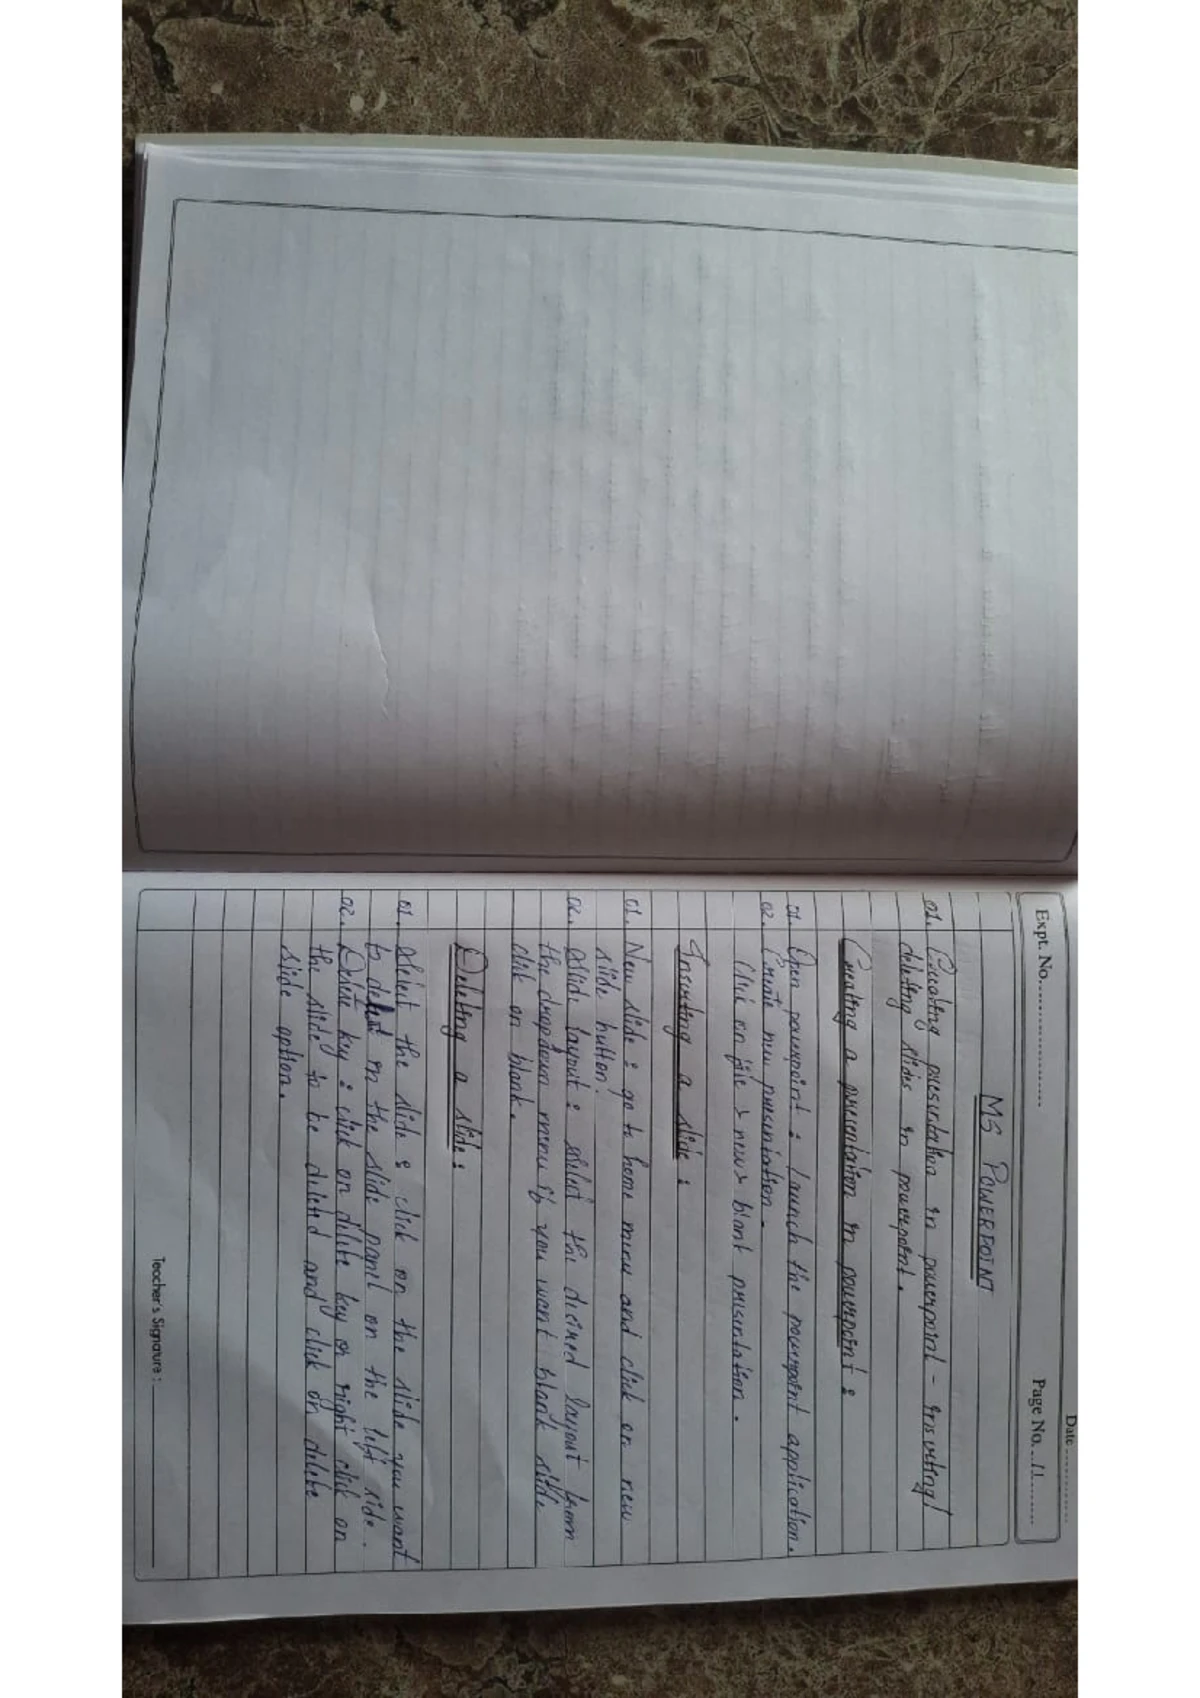 Date
Expt. No.
Page No. 11
MS POWERPOINT
01. Creating presentation in powerpoint - inserting/
deleting slides in powerpoint.
Creating a presentation in powerpoint :
01. Open powerpoint : launch the powerpoint application.
02. Create new presentation.
Click on file > new > blank presentation.
Inserting a slide :
01. New slide : go to home menu and click on new
slide button.
02. Slide layout : select the desired layout from
the dropdown menu if you want blank slide
click on blank.
Deleting a slide :
01. Select the slide : click on the slide you want
to delet in the slide panel on the left side.
02. Delete key : click on delete key or right click on
the slide to be deleted and click on delete
slide option.
Teacher's Signature :